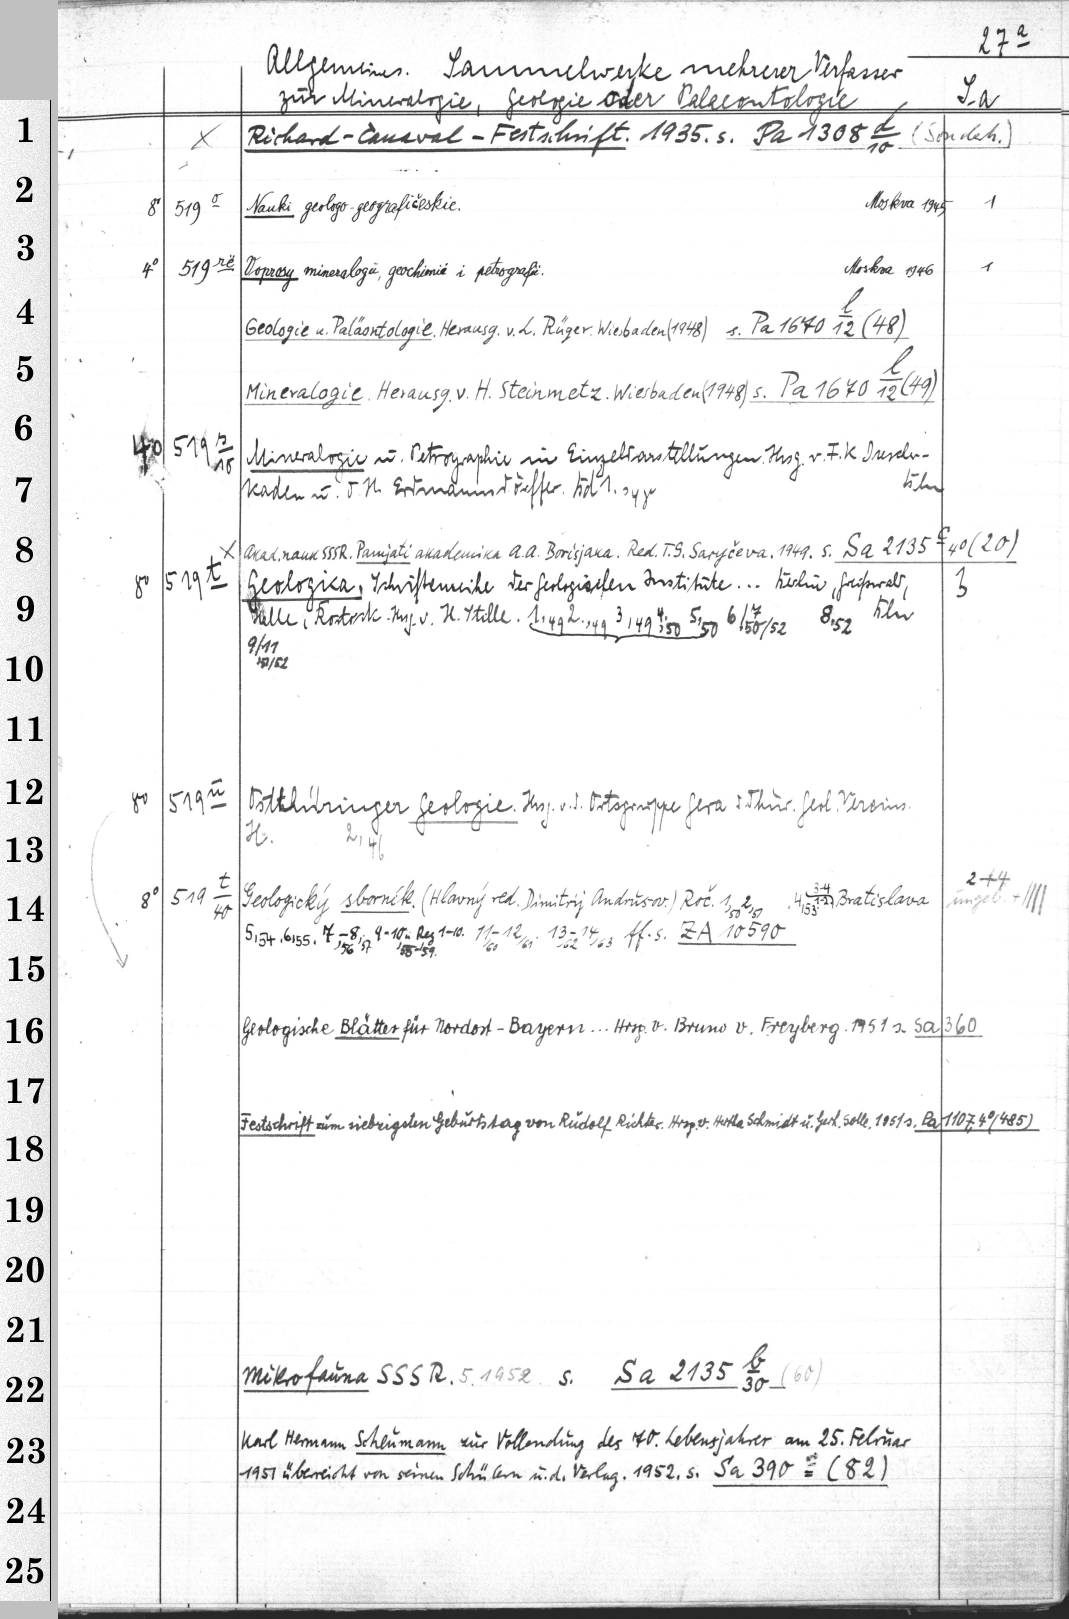 27a
Allgemeines. Sammelwerke mehrerer Verfasser
zur Mineralogie, Geologie oder Palaeontologie
S.a
1
X Richard-Canaval-Festschrift. 1935. s. Pa 1308 d/10 (Sonderh.)
2
8° 519 o Nauki geologo-geografičeskie. Moskva 1945 1
3
4° 519 Voprosy mineralogii, geochimii i petrografii. Moskva 1946 1
4
Geologie u. Paläontologie. Herausg. v. L. Rüger. Wiesbaden (1948) s. Pa 1670 l/12 (48)
5
Mineralogie. Herausg. v. H. Steinmetz. Wiesbaden (1948) s. Pa 1670 l/12 (49)
6
4° 519 s/10 Mineralogie u. Petrographie in Einzeldarstellungen. Hrsg. v. F. K. Drescher-
7
Kaden u. O. H. Erdmannsdörffer. Bd 1. Bln
8
X Akad. nauk SSSR. Pamjati akademika A. A. Borisjaka. Red. T. G. Saryčeva. 1949. s. Sa 2135 c 4° (20)
8° 519 t Geologica. Schriftenreihe der Geologischen Institute ... Berlin, Greifswald, 3
9
Halle, Rostock. Hrsg. v. H. Stille. 1,49 2,49 3,49 4,50 5,50 6/7,50/52 8,52 Bln
9/11
51/52
10
11
12
8° 519 u Ostthüringer Geologie. Hrsg. v. d. Ortsgruppe Gera d. Thür. Geol. Vereins.
13
H. 2,46
14
8° 519 t/40 Geologický sborník. (Hlavný red. Dimitrij Andrusov.) Roč. 1,50 2,51 4,53 Bratislava
2 ungeb. + ||||
5,54. 6,55. 7,56-8,57 9-10,58-59. u. Reg 1-10. 11/60-12/61. 13/62-14/63 ff. s. ZA 10590
15
16
Geologische Blätter für Nordost-Bayern ... Hrsg. v. Bruno v. Freyberg. 1951 s. Sa 360
17
Festschrift zum siebzigsten Geburtstag von Rudolf Richter. Hrsg. v. Herta Schmidt u. Gerh. Solle. 1951 s. Pa 1107, 4° (485)
18
19
20
21
22
Mikrofauna SSSR. 5. 1952 s. Sa 2135 b/30 (60)
23
Karl Hermann Scheumann zur Vollendung des 70. Lebensjahres am 25. Februar
1951 überreicht von seinen Schülern u. d. Verlag. 1952. s. Sa 390 (82)
24
25